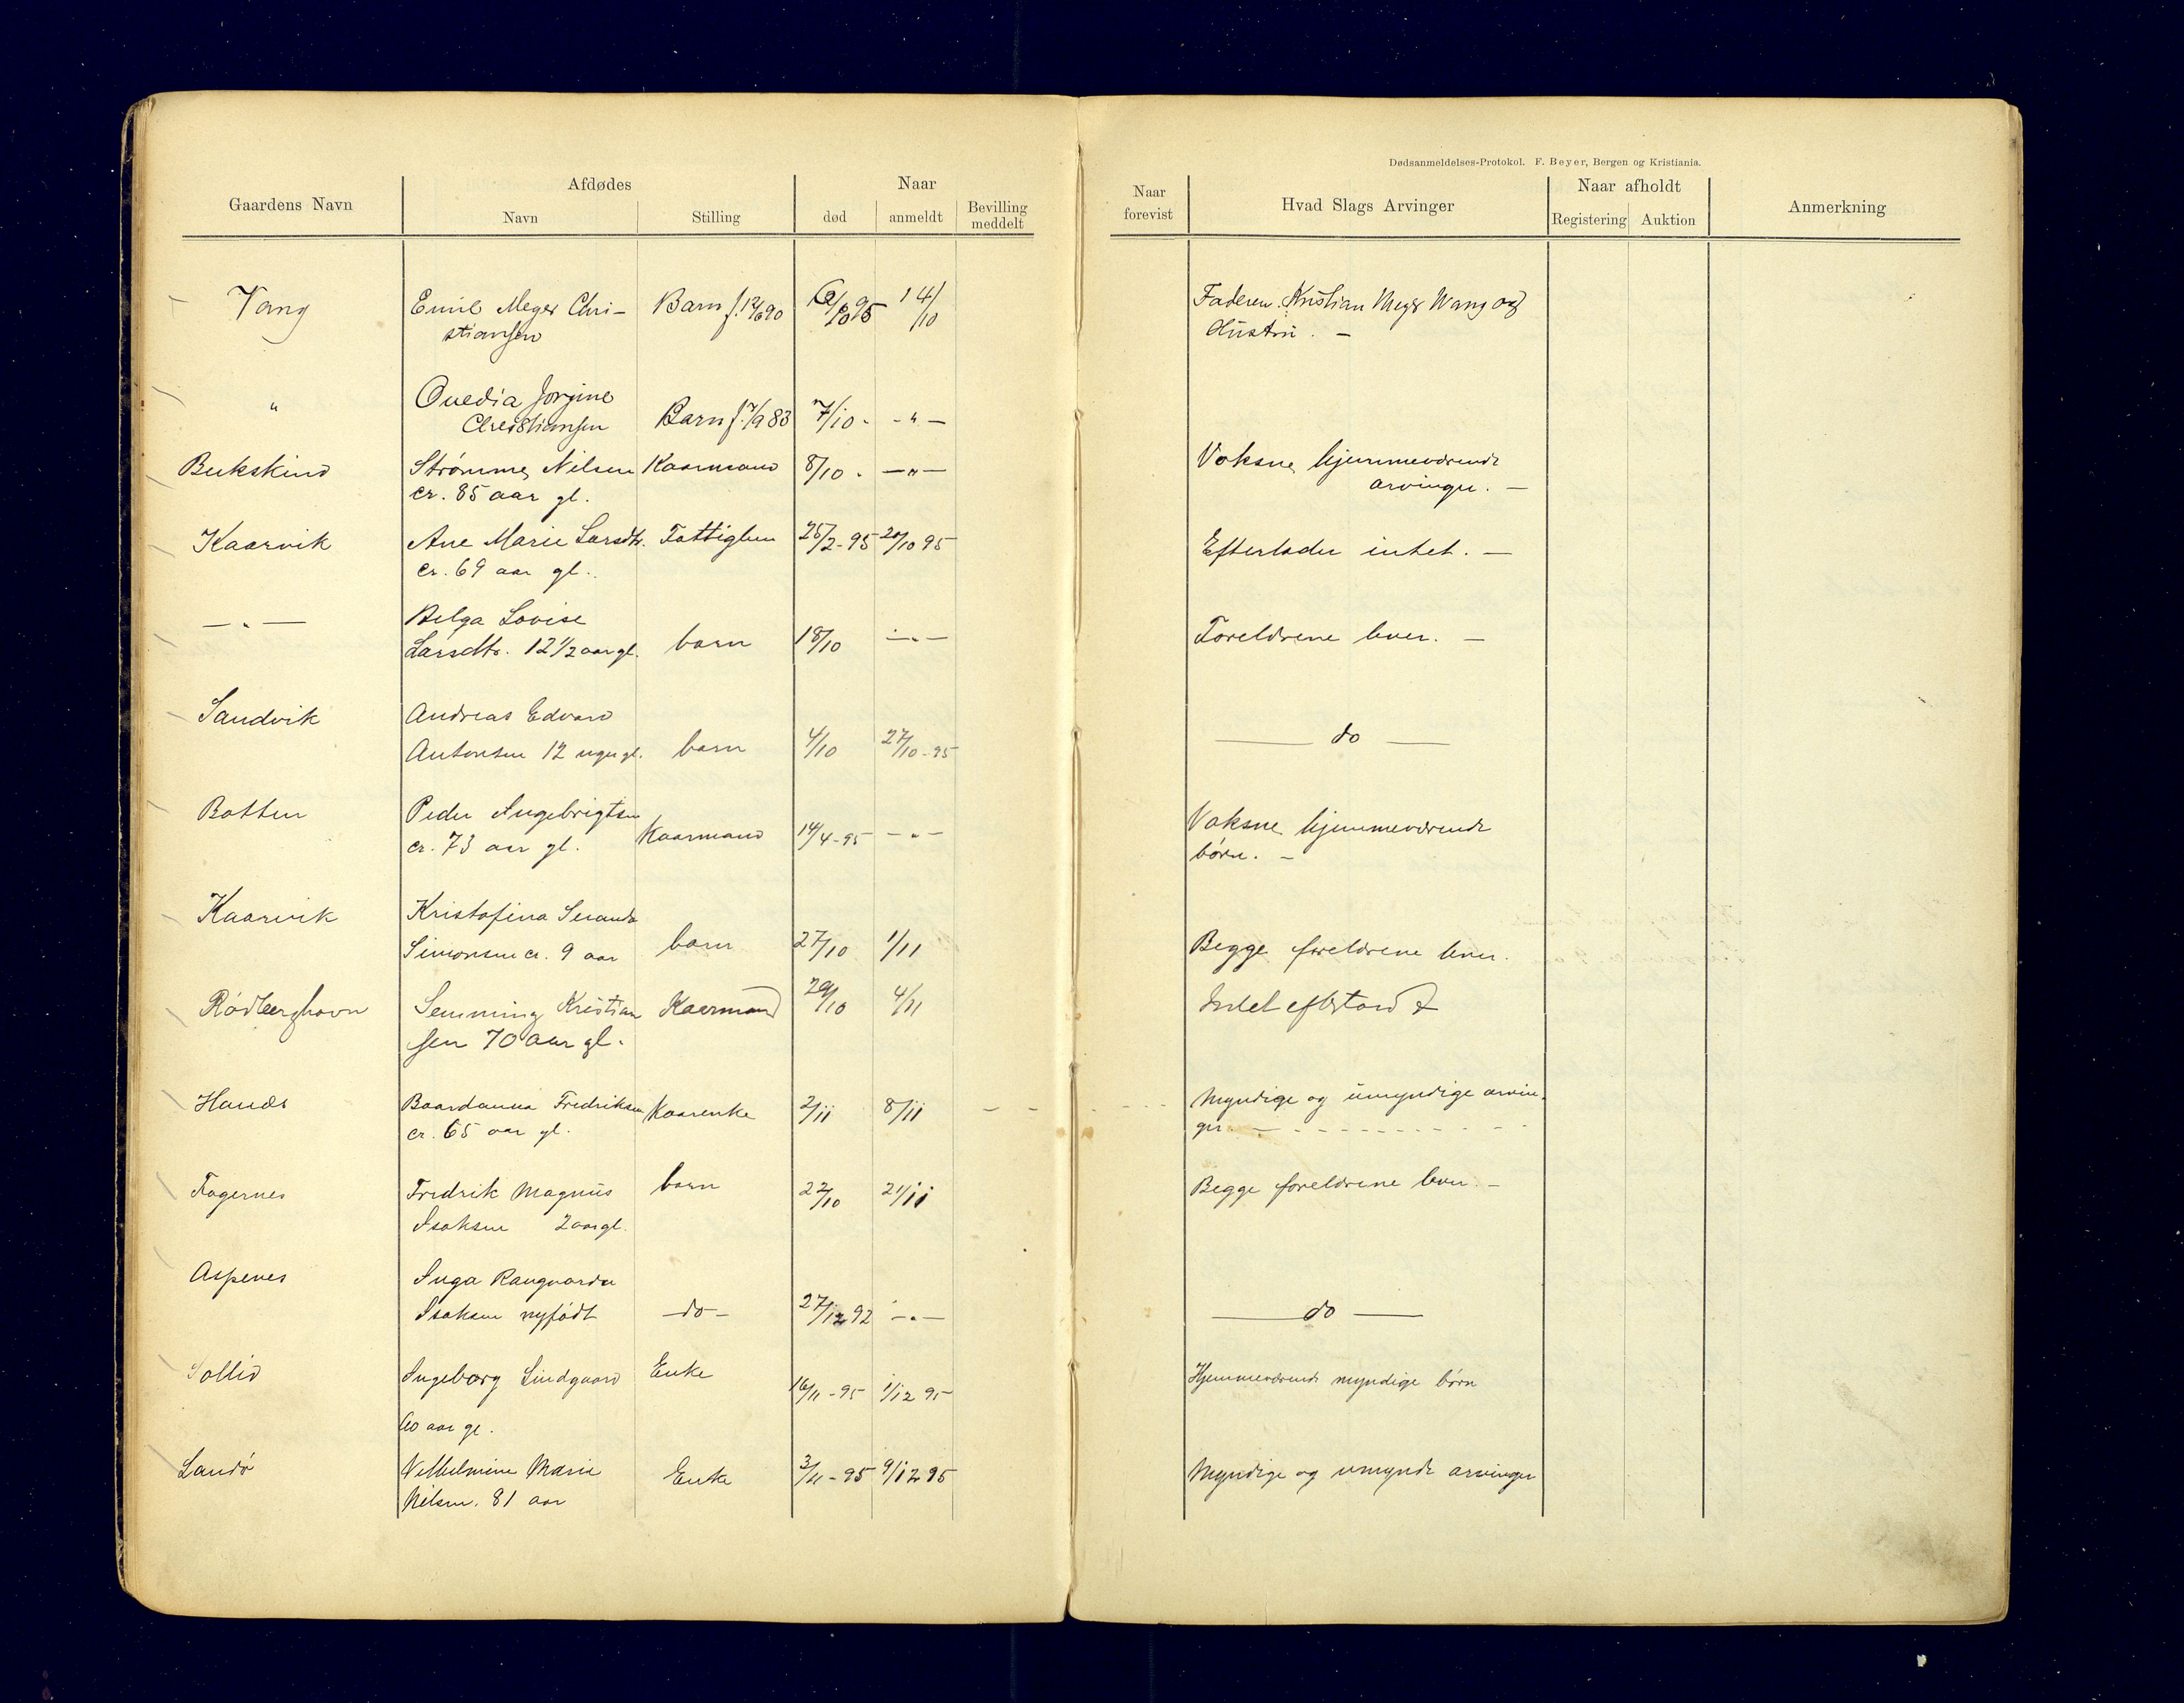 Dødsanmeldelses-Protokol. F. Beyer, Bergen og Kristiania.
Gaardens Navn
Afdødes
Navn
Stilling
Naar
død
anmeldt
Bevilling
meddelt
Naar
forevist
Hvad Slags Arvinger
Naar afholdt
Registering
Auktion
Anmerkning
Vang Emil Meyer Chri- Barn f. 12/6 90 10 95 14/10 Faderen Kristian Meyer Wang og
stiansen Hustru. –
" Ovedia Jorgine
Christiansen Barn f. 7/9 83 7/10 - - " -
Bukskind Strømme Nilsen Kaarmand 8/10 - - " - Voksne hjemmeværende
cr. 85 aar gl. arvinger. –
Kaarvik Ane Marie Larsdtr. Fattiglem 25/2-95 20/10 95 Efterlader intet. –
cr. 69 aar gl.
— " — Helga Lovise
Larsdtr. 12 1/2 aar gl. barn 18/10 - " - Foreldrene lever. –
Sandvik Andreas Edvard
Antonsen 12 uger gl. barn 4/10 27/10-95 — do —
Botten Peder Ingebrigtsen Kaarmand 14/4-95 - " - Voksne hjemmeværende
cr. 73 aar gl. børn. –
Kaarvik Kristofina
Simonsen cr. 9 aar barn 27/10 1/11 Begge foreldrene lever.
Rødberghavn Semming Kristian Kaarmand 29/10 4/11 Intet efterladt
sen 70 aar gl.
Hanæs Baardanna Fredriksen Kaarenke 2/11 8/11 Myndige og umyndige arvin-
cr. 65 aar gl. ger. –
Fagernes Fredrik Magnus barn 22/10 21/11 Begge foreldrene lever. –
Isaksen 2 aar gl.
Aspenes Inga Rangvarda
Isaksen nyfødt – do – 27/12 92 - " - — do —
Sollid Ingeborg Lindgaard Enke 16/11-95 1/12 95 Hjemmeværende myndige børn
60 aar gl.
Sandø Vilhelmine Marie Enke 3/11-95 9/12 95 Myndige og umynde arvinger
Nilsen. 81 aar